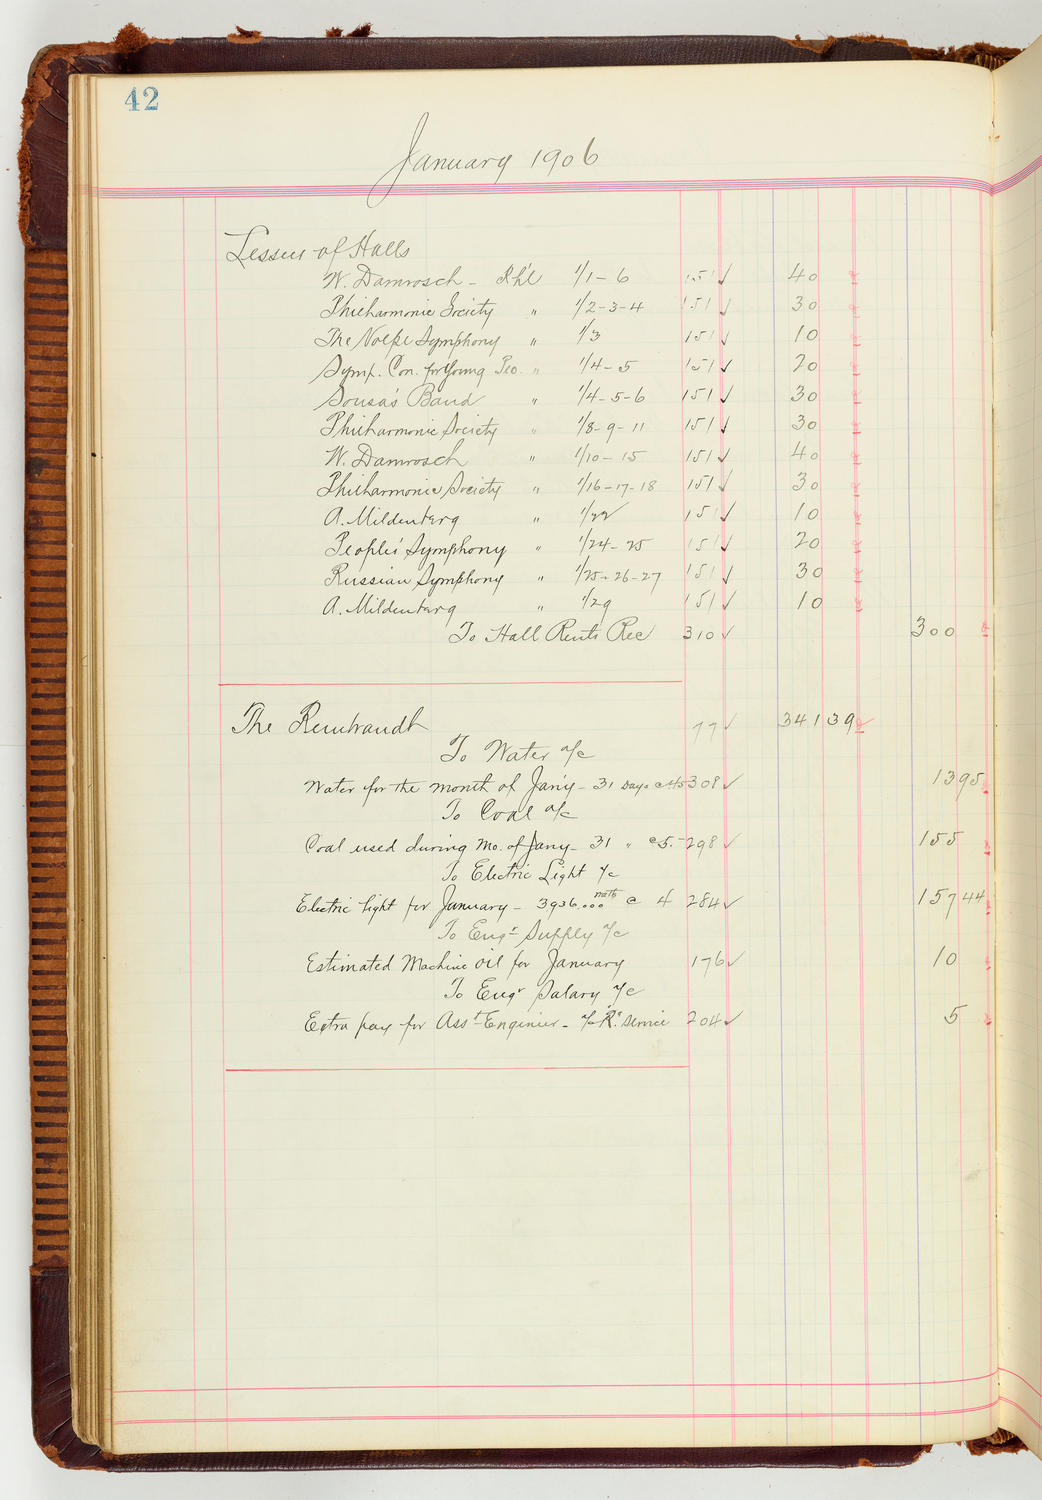 42
January 1906
Lessees of Halls
W. Damrosch - Rh'l 1/1-6 151 ✓ 40
Philharmonic Society " 1/2-3-4 151 ✓ 30
The Volpe Symphony " 1/3 151 ✓ 10
Symp. Con. for Young Peo. " 1/4-5 151 ✓ 20
Sousa's Band " 1/4-5-6 151 ✓ 30
Philharmonic Society " 1/8-9-11 151 ✓ 30
W. Damrosch " 1/10-15 151 ✓ 40
Philharmonic Society " 1/16-17-18 151 ✓ 30
A. Mildenberg " 1/22 151 ✓ 10
Peoples' Symphony " 1/24-25 151 ✓ 20
Russian Symphony " 1/25-26-27 151 ✓ 30
A. Mildenberg " 1/29 151 ✓ 10
To Hall Rents Rec 310 ✓ 300
The Rembrandt 77 ✓ 341 39
To Water a/c
Water for the month of Jan'y - 31 Days @ 45 308 ✓ 13 95
To Coal a/c
Coal used during Mo. of Jany - 31 " @ 5.- 298 ✓ 155
To Electric Light a/c
Electric light for January - 3936.000 @ 4 284 ✓ 157 44
To Engr Supply a/c
Estimated Machine oil for January 176 ✓ 10
To Engr Salary a/c
Extra pay for Asst Engineer - a/c R. service 204 ✓ 5